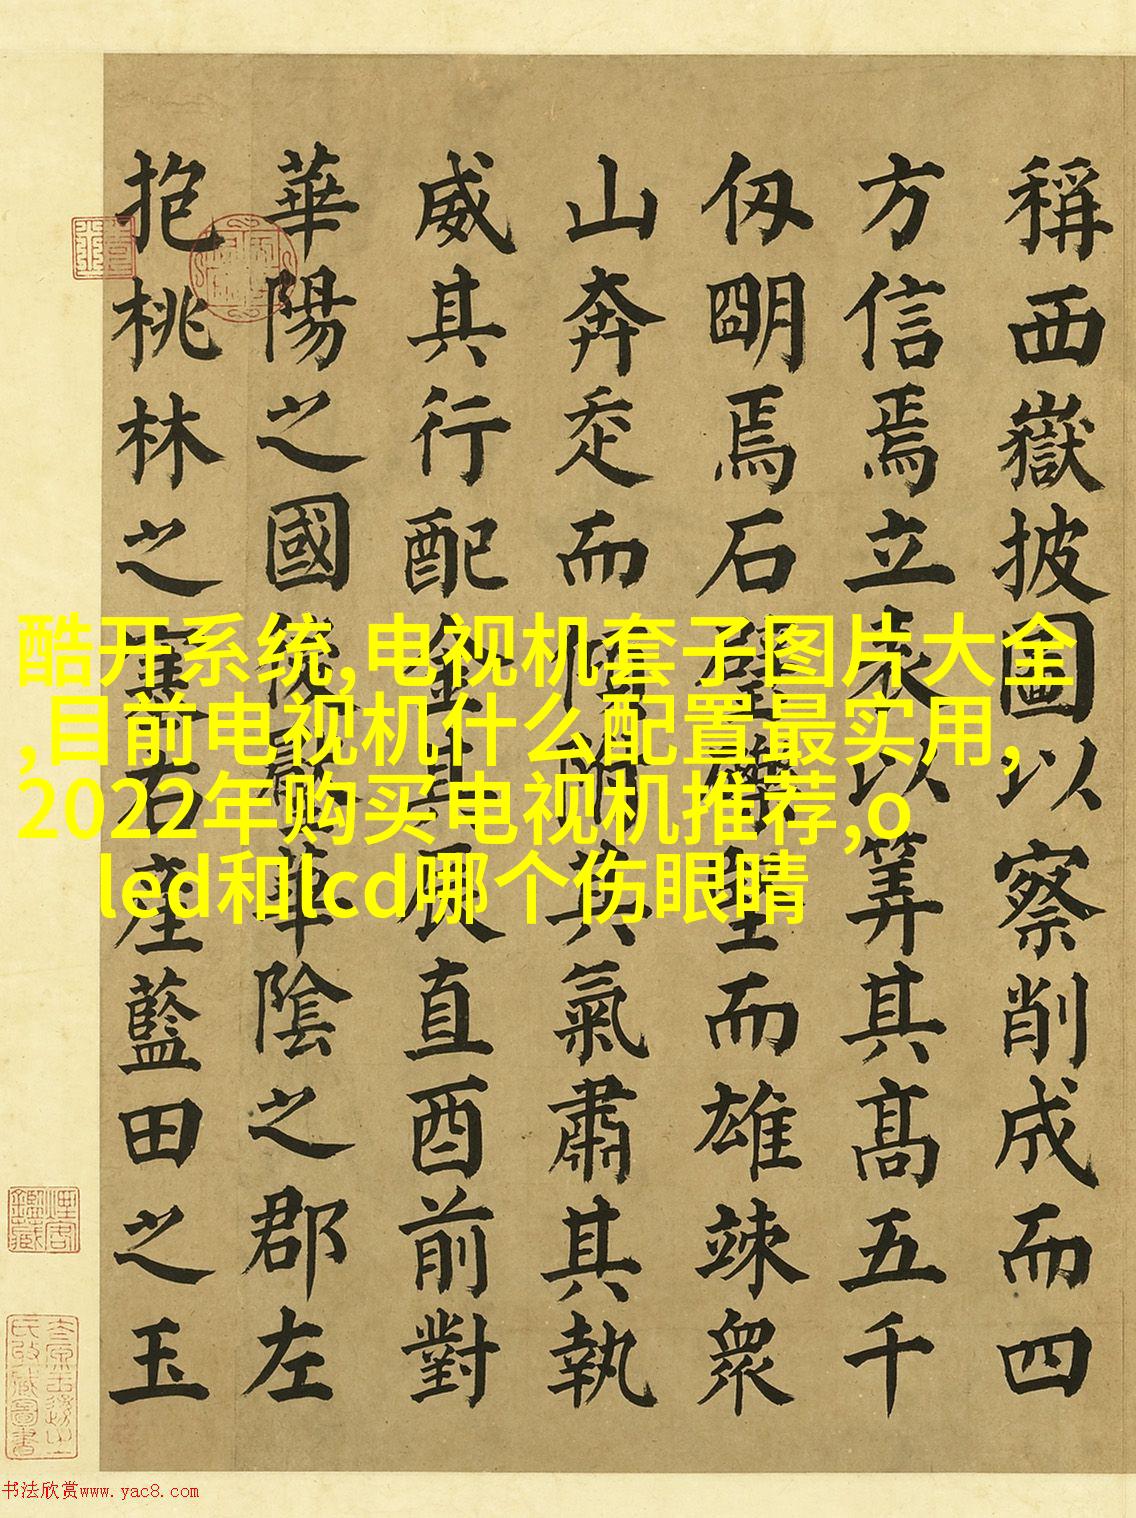 稱西嶽披圖以察削成而四
方信焉立表以筭其髙五千
仭朙焉石壁竪而雄竦衆
山奔走而傾附其氣肅其執
威其行配金其辰直酉前對
華陽之國後壓華陰之郡左
抱桃林之塞右産藍田之玉
酷开系统,电视机套子图片大全
,目前电视机什么配置最实用,
2022年购买电视机推荐,o
led和lcd哪个伤眼睛
书法欣赏www.yac8.com